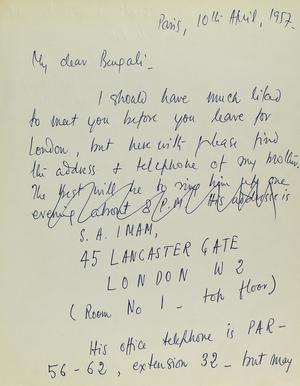 Paris, 10th April, 1957.
My dear Bengali_
I should have much liked
to meet you before you leave for
London, but here with please find
the address & telephone of my brother.
The best will be to ring him up one
evening about 8 P.M. His address is
S. A. IMAM,
45 LANCASTER GATE
LONDON W 2
(Room No 1 _ top floor)
His office telephone is PAR-
56-62, extension 32 _ but may